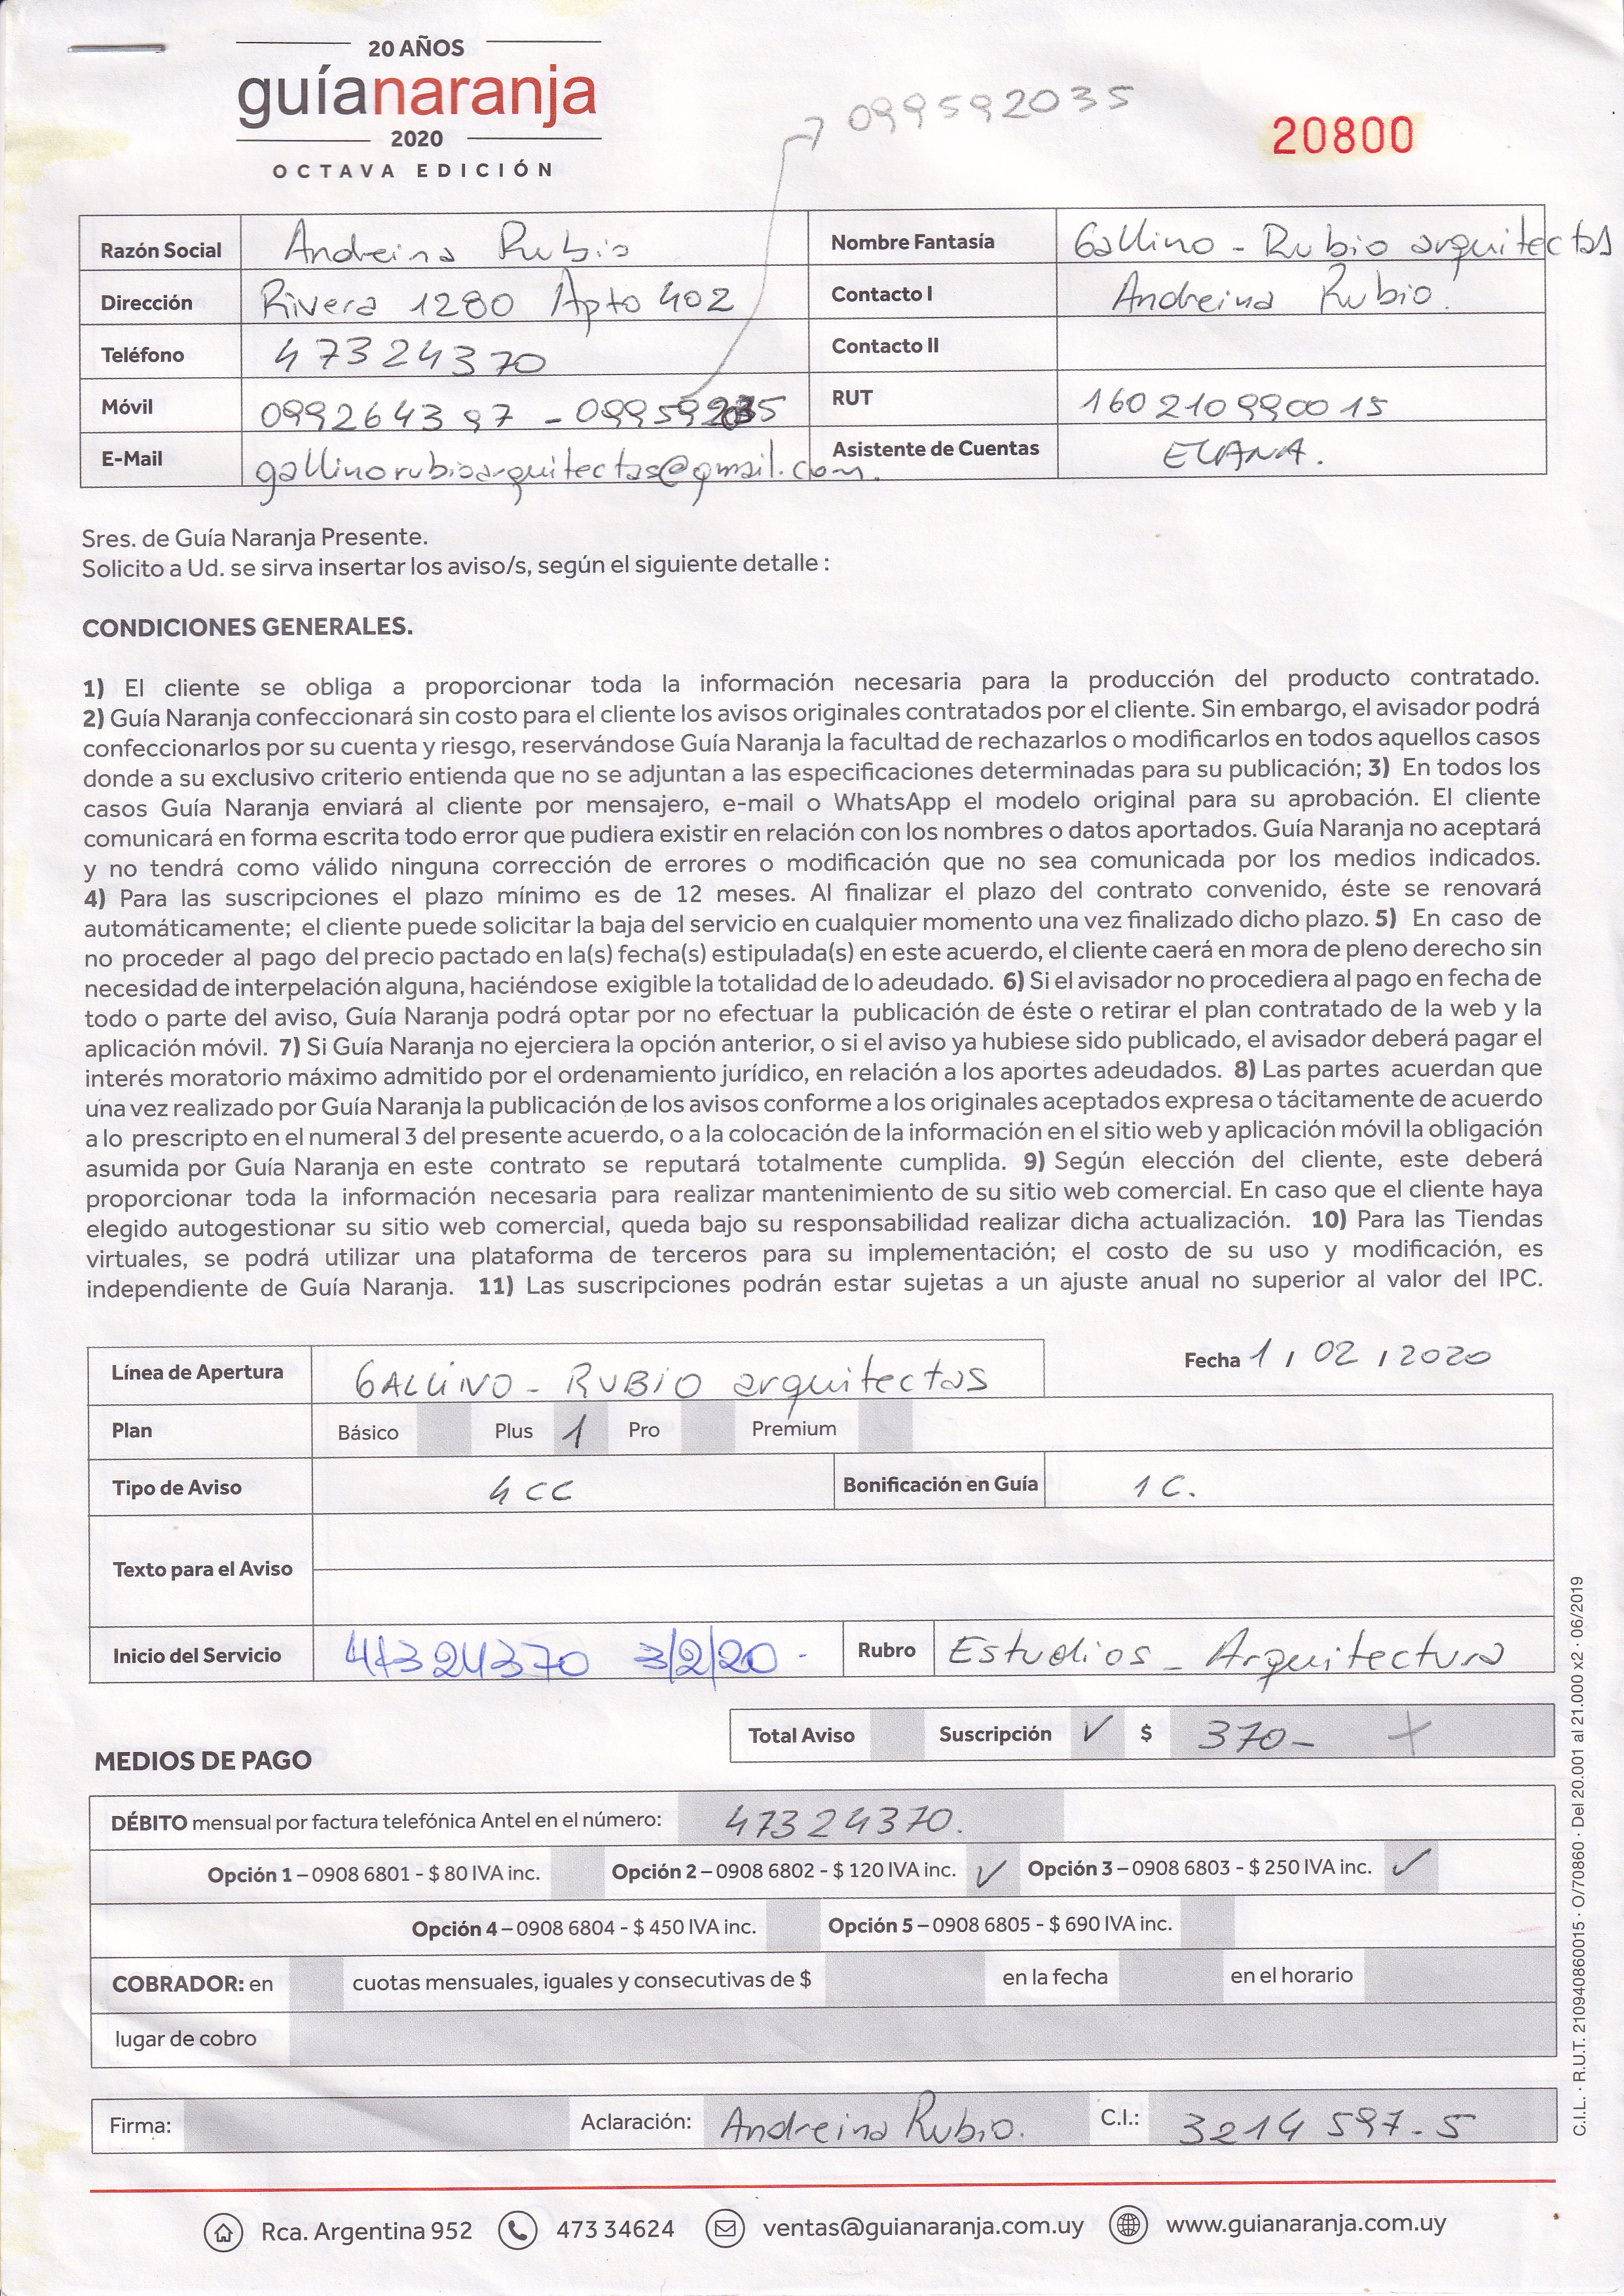 20 AÑOS
guíanaranja
2020
OCTAVA EDICIÓN
099592035
20800
Razón Social Andreina Rubio Nombre Fantasía Gallino - Rubio arquitectos
Dirección Rivera 1280 Apto 402 Contacto I Andreina Rubio.
Teléfono 47324370 Contacto II
Móvil 099264397 - 099592035 RUT 160210990015
E-Mail gallinorubioarquitectas@gmail.com. Asistente de Cuentas ELIANA.
Sres. de Guía Naranja Presente.
Solicito a Ud. se sirva insertar los aviso/s, según el siguiente detalle :
CONDICIONES GENERALES.
1) El cliente se obliga a proporcionar toda la información necesaria para la producción del producto contratado.
2) Guía Naranja confeccionará sin costo para el cliente los avisos originales contratados por el cliente. Sin embargo, el avisador podrá
confeccionarlos por su cuenta y riesgo, reservándose Guía Naranja la facultad de rechazarlos o modificarlos en todos aquellos casos
donde a su exclusivo criterio entienda que no se adjuntan a las especificaciones determinadas para su publicación; 3) En todos los
casos Guía Naranja enviará al cliente por mensajero, e-mail o WhatsApp el modelo original para su aprobación. El cliente
comunicará en forma escrita todo error que pudiera existir en relación con los nombres o datos aportados. Guía Naranja no aceptará
y no tendrá como válido ninguna corrección de errores o modificación que no sea comunicada por los medios indicados.
4) Para las suscripciones el plazo mínimo es de 12 meses. Al finalizar el plazo del contrato convenido, éste se renovará
automáticamente; el cliente puede solicitar la baja del servicio en cualquier momento una vez finalizado dicho plazo. 5) En caso de
no proceder al pago del precio pactado en la(s) fecha(s) estipulada(s) en este acuerdo, el cliente caerá en mora de pleno derecho sin
necesidad de interpelación alguna, haciéndose exigible la totalidad de lo adeudado. 6) Si el avisador no procediera al pago en fecha de
todo o parte del aviso, Guía Naranja podrá optar por no efectuar la publicación de éste o retirar el plan contratado de la web y la
aplicación móvil. 7) Si Guía Naranja no ejerciera la opción anterior, o si el aviso ya hubiese sido publicado, el avisador deberá pagar el
interés moratorio máximo admitido por el ordenamiento jurídico, en relación a los aportes adeudados. 8) Las partes acuerdan que
una vez realizado por Guía Naranja la publicación de los avisos conforme a los originales aceptados expresa o tácitamente de acuerdo
a lo prescripto en el numeral 3 del presente acuerdo, o a la colocación de la información en el sitio web y aplicación móvil la obligación
asumida por Guía Naranja en este contrato se reputará totalmente cumplida. 9) Según elección del cliente, este deberá
proporcionar toda la información necesaria para realizar mantenimiento de su sitio web comercial. En caso que el cliente haya
elegido autogestionar su sitio web comercial, queda bajo su responsabilidad realizar dicha actualización. 10) Para las Tiendas
virtuales, se podrá utilizar una plataforma de terceros para su implementación; el costo de su uso y modificación, es
independiente de Guía Naranja. 11) Las suscripciones podrán estar sujetas a un ajuste anual no superior al valor del IPC.
Fecha 1 / 02 / 2020
Línea de Apertura GALLINO - RUBIO arquitectas
Plan Básico Plus 1 Pro Premium
Tipo de Aviso 4 CC Bonificación en Guía 1 C.
Texto para el Aviso
Inicio del Servicio 47324370 3/2/20 - Rubro Estudios - Arquitectura
Total Aviso Suscripción ✓ $ 370-
MEDIOS DE PAGO
DÉBITO mensual por factura telefónica Antel en el número: 47324370.
Opción 1 – 0908 6801 - $ 80 IVA inc. Opción 2 – 0908 6802 - $ 120 IVA inc. ✓ Opción 3 – 0908 6803 - $ 250 IVA inc. ✓
Opción 4 – 0908 6804 - $ 450 IVA inc. Opción 5 – 0908 6805 - $ 690 IVA inc.
COBRADOR: en cuotas mensuales, iguales y consecutivas de $ en la fecha en el horario
lugar de cobro
Firma: Aclaración: Andreina Rubio. C.I.: 3214 597-5
Rca. Argentina 952 473 34624 ventas@guianaranja.com.uy www.guianaranja.com.uy
C.I.L. · R.U.T. 210940860015 · O/70860 · Del 20.001 al 21.000 x2 · 06/2019